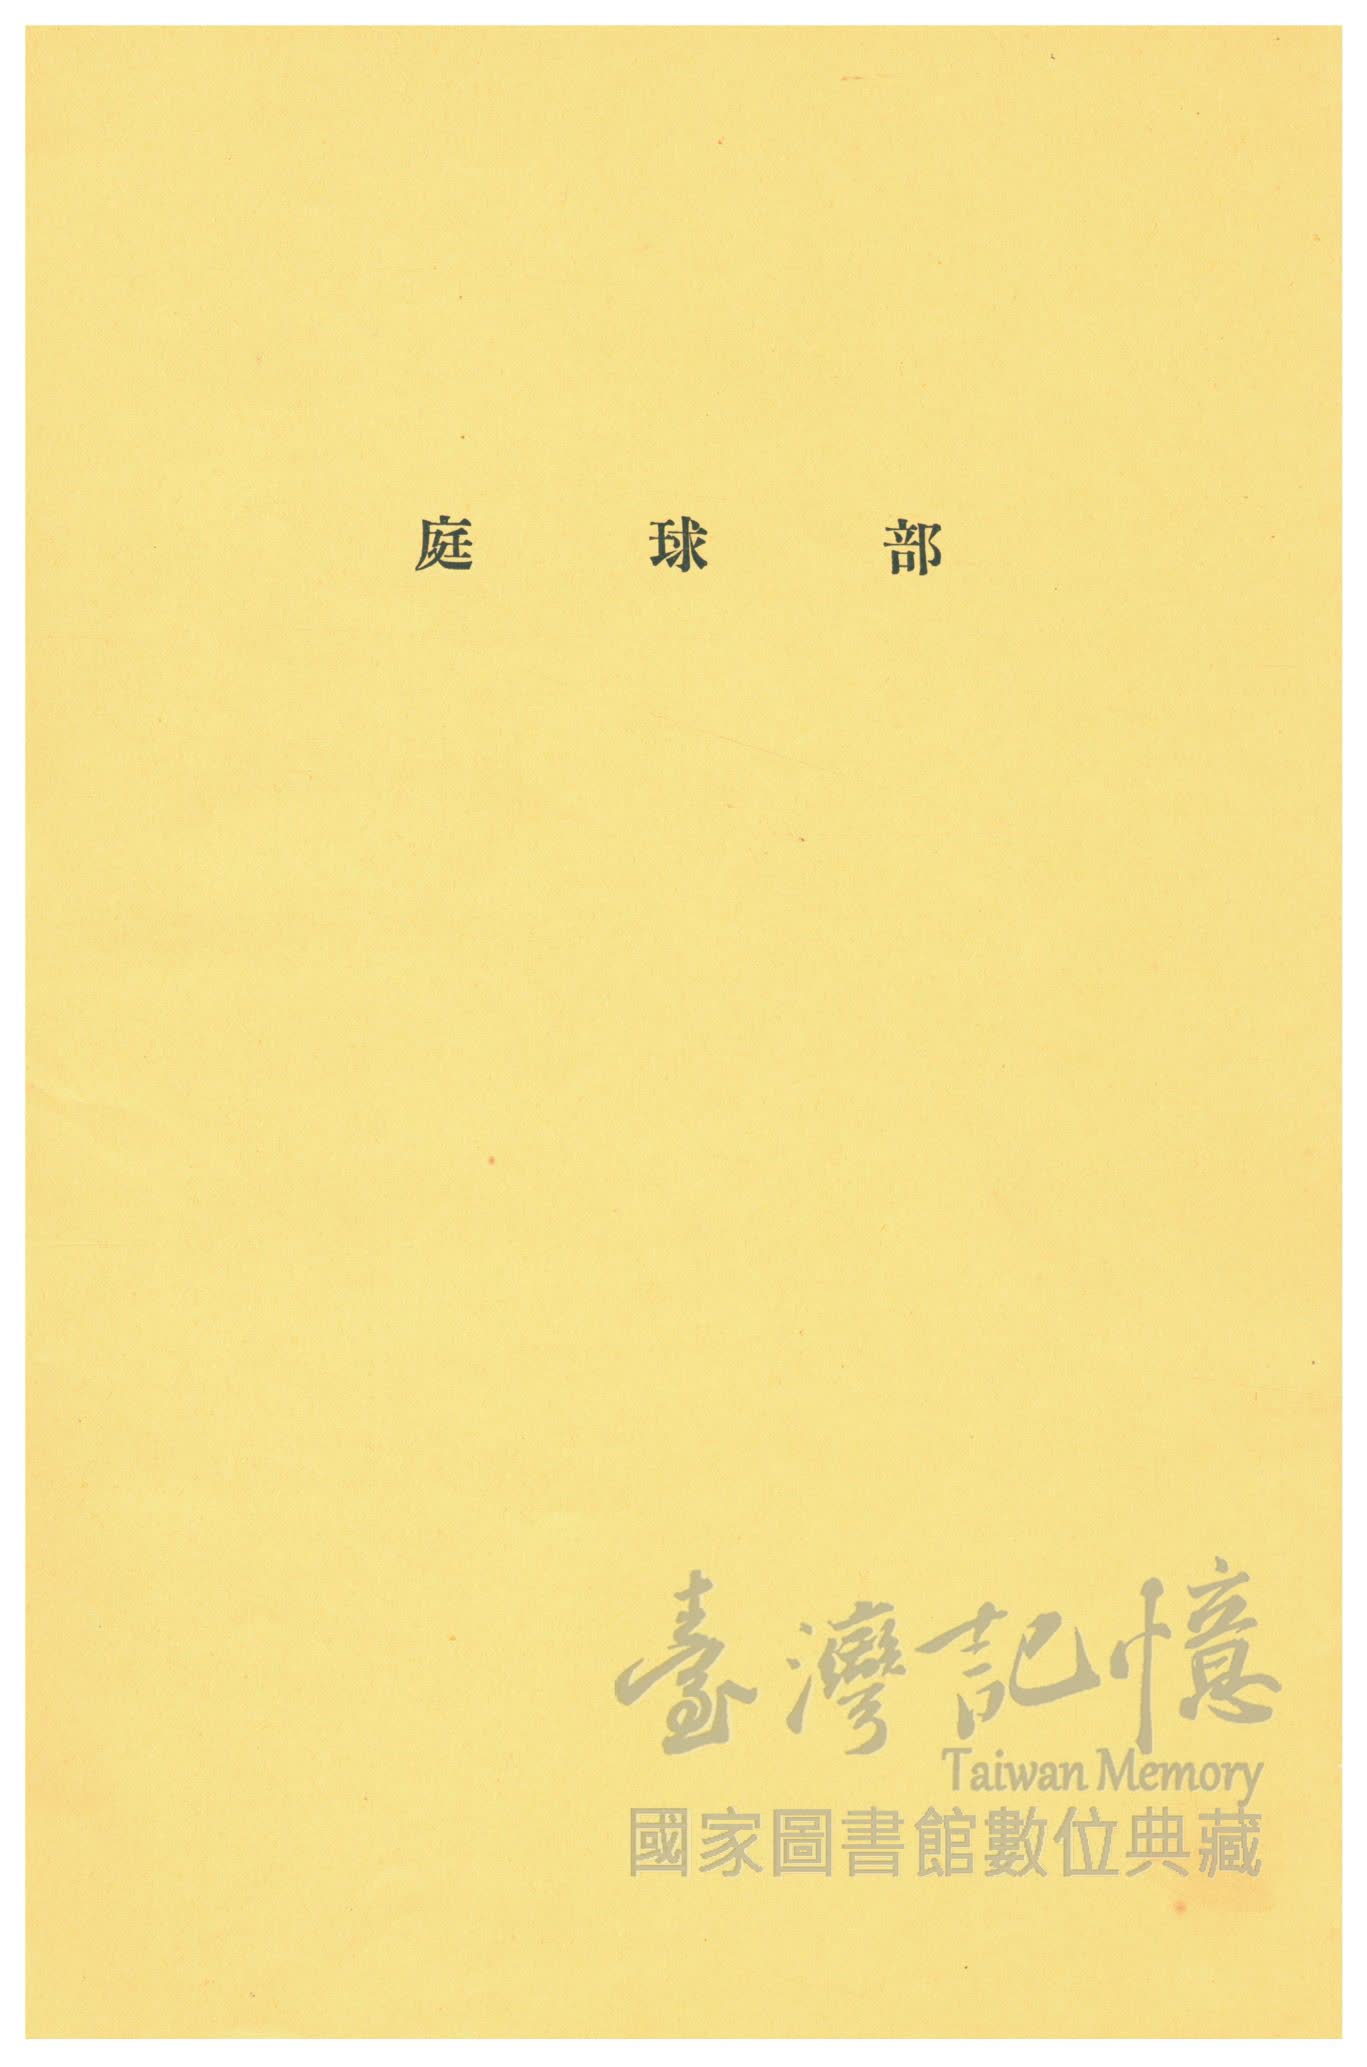 庭球部
臺灣記憶
Taiwan Memory
國家圖書館數位典藏